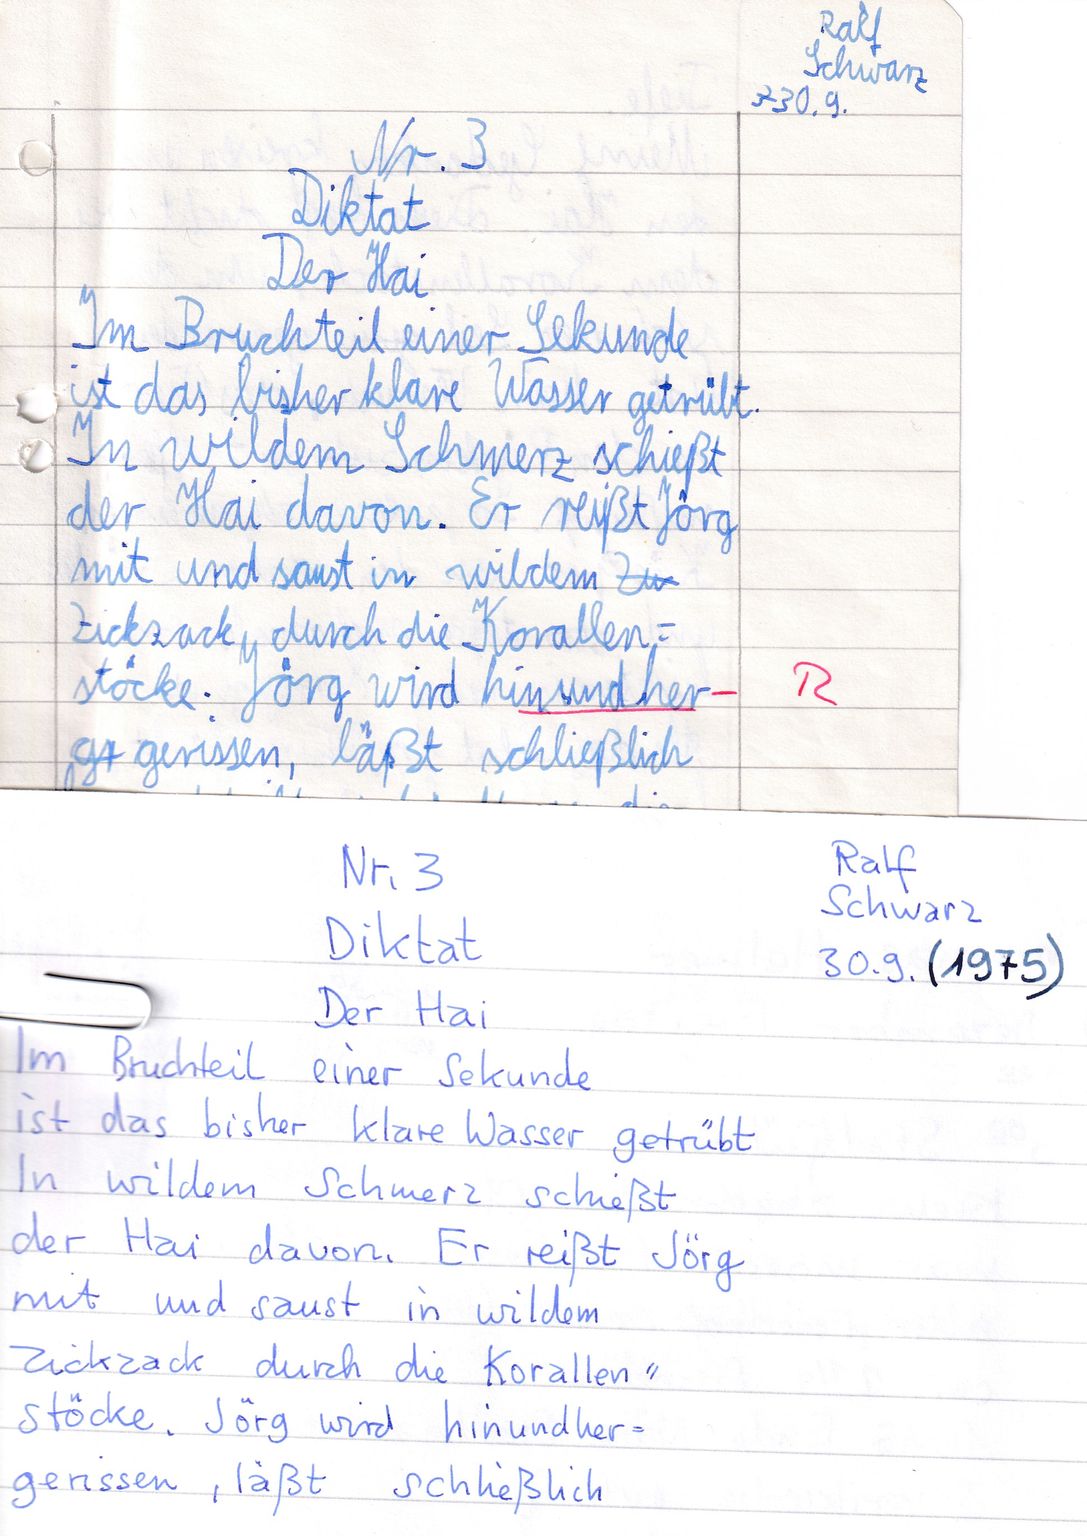 Ralf
Schwarz
30.9.
Nr. 3
Diktat
Der Hai
Im Bruchteil einer Sekunde
ist das bisher klare Wasser getrübt.
In wildem Schmerz schießt
der Hai davon. Er reißt Jörg
mit und saust in wildem Zu
Zickzack, durch die Korallen=
stöcke. Jörg wird hinundher- R
gerissen, läßt schließlich
Nr. 3
Ralf
Diktat
Schwarz
30.9. (1975)
Der Hai
Im Bruchteil einer Sekunde
ist das bisher klare Wasser getrübt
In wildem Schmerz schießt
der Hai davon. Er reißt Jörg
mit und saust in wildem
Zickzack durch die Korallen=
stöcke. Jörg wird hinundher=
gerissen, läßt schließlich